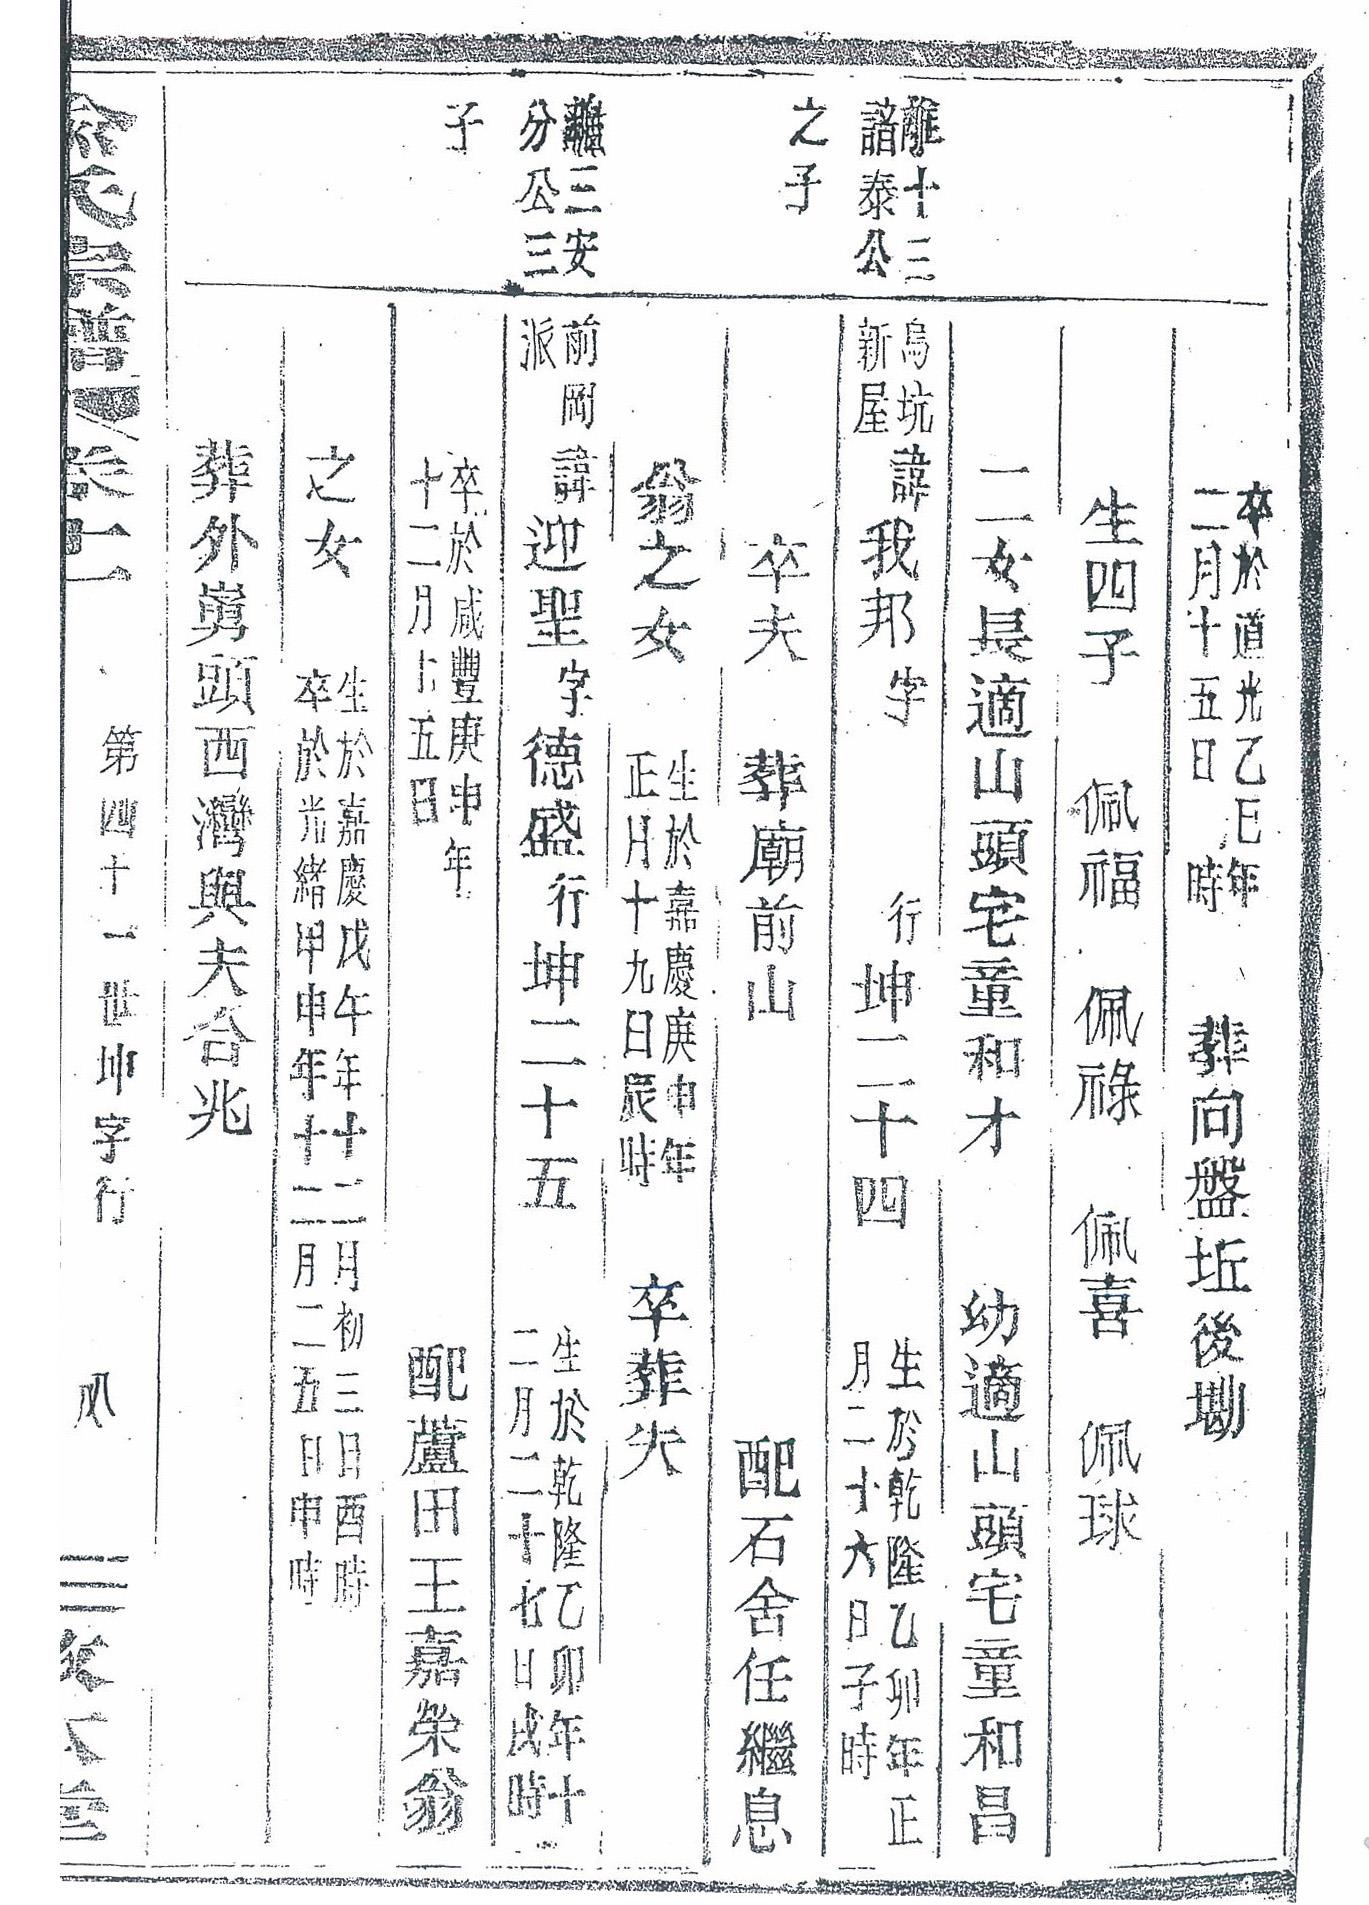 卒於道光乙巳年
二月十五日　時
葬向盤坵後塝
生四子　佩福　佩祿　佩喜　佩球
二女長適山頭宅童和才　幼適山頭宅童和昌
離十三
諳泰公
之子
烏坑
新屋
諱我邦字　行坤二十四
生於乾隆乙卯年正
月二十六日子時
配石舍任繼息
卒夫　葬廟前山
翁之女
生於嘉慶庚申年
正月十九日辰時
卒葬失
三安
分公三
子
前岡
派
諱迎聖字德盛行坤二十五
生於乾隆乙卯年十
二月二十七日戌時
卒於咸豐庚申年
十二月十五日
配蘆田王嘉榮翁
之女
生於嘉慶戊午年十二月初三日酉時
卒於光緒甲申年十二月二五日申時
葬外嶴頭西灣與夫合兆
氏宗譜　卷七　第四十一世坤字行　八